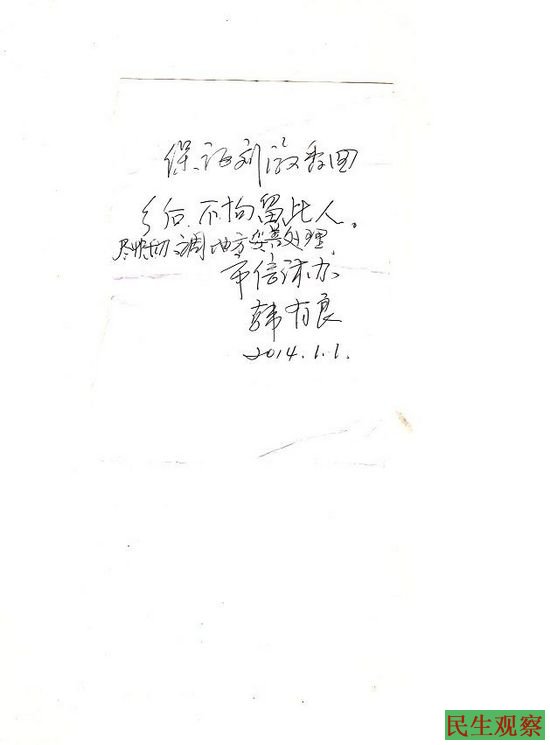 保证刘淑香回
乡后不拘留此人。
尽快协调地方妥善处理
市信访办
韩有良
2014.1.1.
民生观察